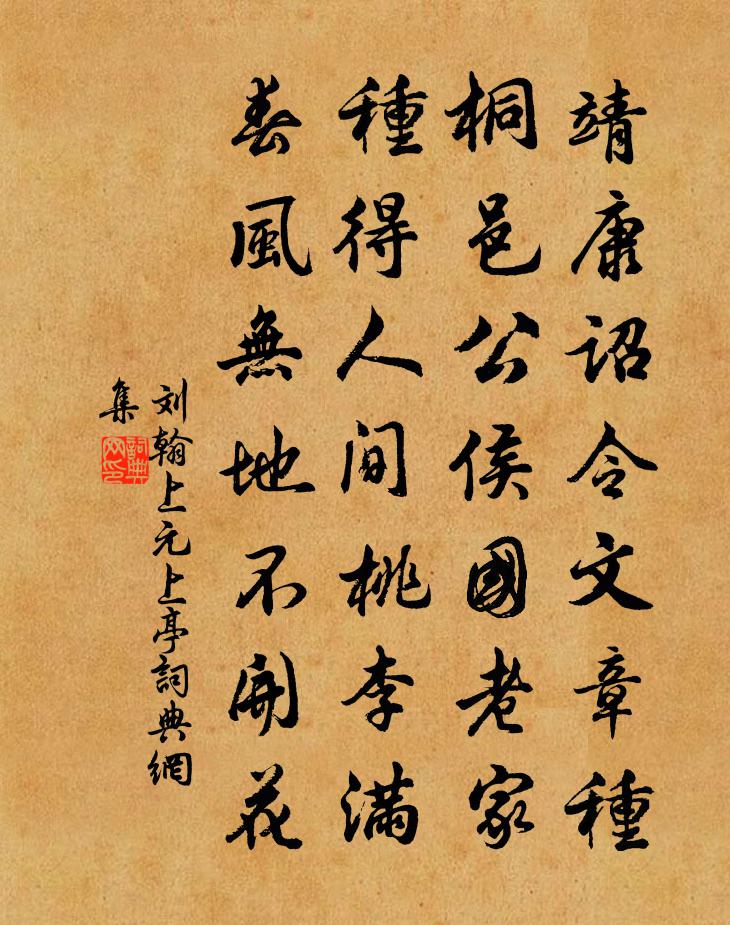 靖康詔令文章種
桐邑公侯國老家
種得人間桃李滿
春風無地不開花
刘翰上元上亭詞典網
集
詞典網印